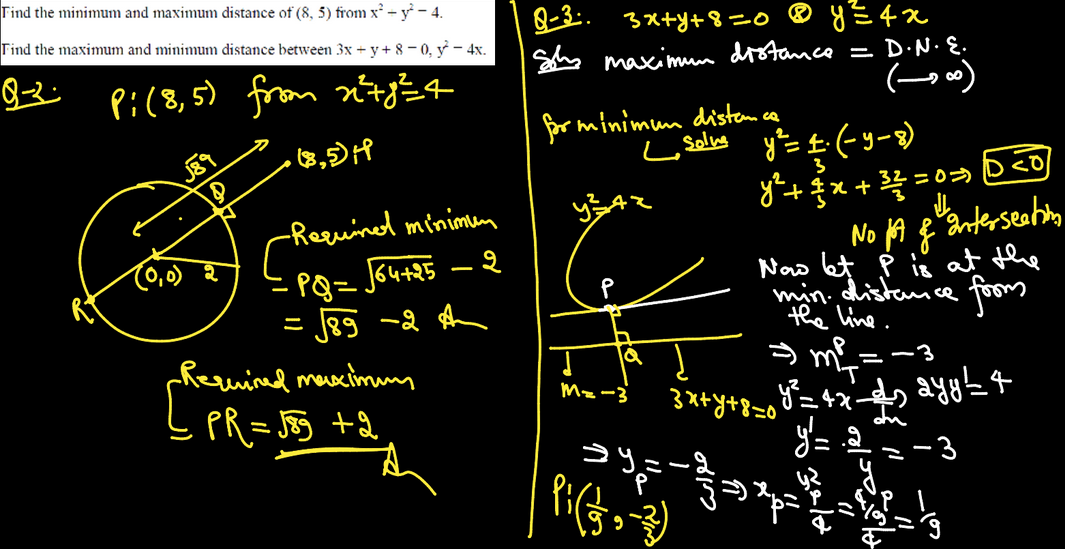 Find the minimum and maximum distance of (8, 5) from x² − y² − 4.
Find the maximum and minimum distance between 3x + y + 8 − 0, y² − 4x.
Q-2:
P:(8,5) from x²+y²=4
√89
(8,5):P
Q
(0,0)
2
R
Required minimum
= PQ = √64+25 − 2
= √89 − 2 Ans
Required maximum
= PR = √89 + 2
Ans
Q-3:. 3x+y+8=0 & y²=4x
Sol: maximum distance = D.N.E.
(→∞)
for minimum distance
Solve
y² = 4/3 . (-y-8)
y² + 4/3 x + 32/3 = 0 ⇒ D<0
⇓
No pt of intersection
y²=4x
P
Q
m=-3
3x+y+8=0
Now let P is at the
min. distance from
the line.
⇒ m_T^P = -3
y²=4x d/dx 2yy'=4
y' = 2/y = -3
⇒ y_P = -2/3 ⇒ x_P = y_P²/4 = 4/9/4 = 1/9
P:(1/9, -2/3)